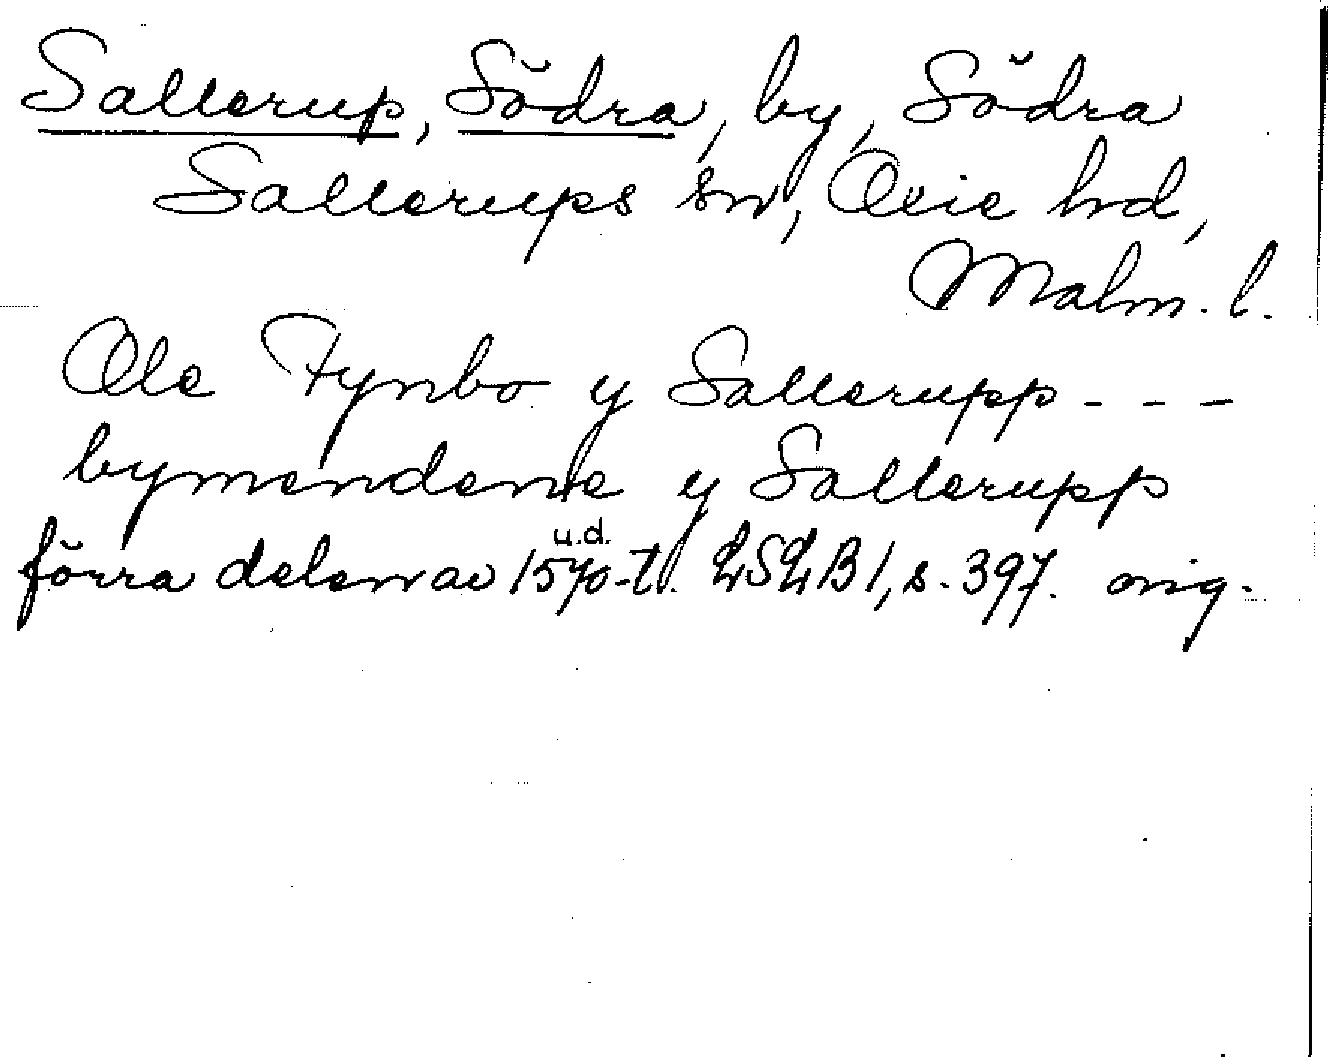 Sallerup, Södra, by, Södra
Sallerups sn, Oxie hrd,
Malm. l.
Ole Fynbo y Sallerupp - - -
bymendene y Sallerupp
u.d.
förra delen av 1570-t. LSLB 1, s. 397. orig.